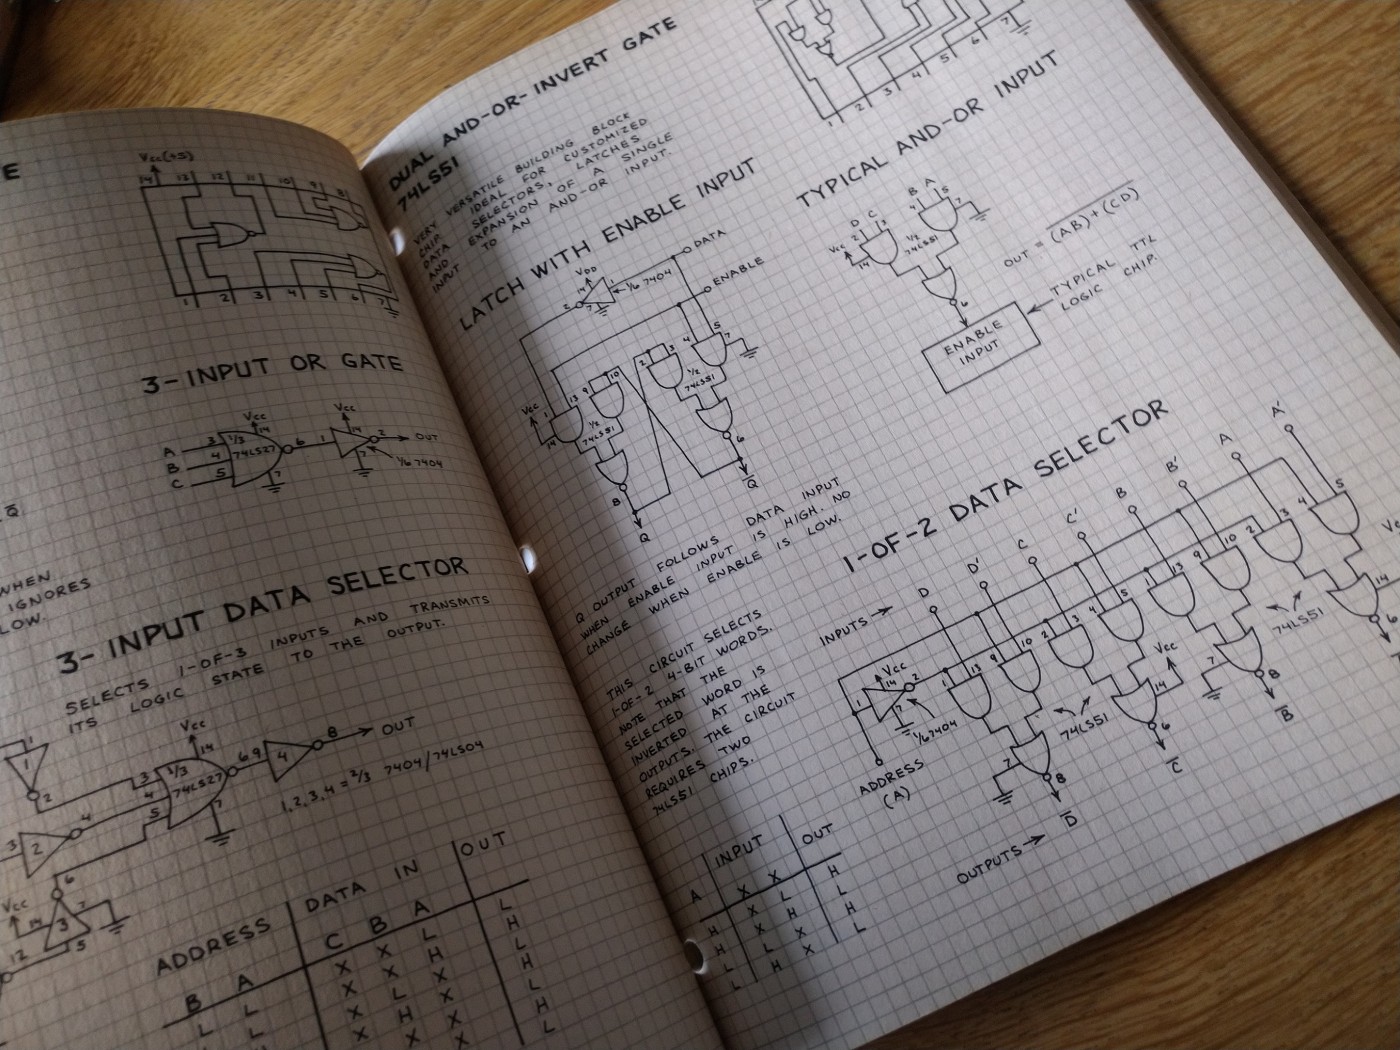 E
Vcc(+5)
14 13 12 11 10 9 8
1 2 3 4 5 6 7
3-INPUT OR GATE
Vcc
14
Vcc
14
A 3
B 4
C 5
1/3
74LS27
6
7
1
2
7
OUT
1/6 7404
Q̄
WHEN
IGNORES
LOW.
3-INPUT DATA SELECTOR
SELECTS 1-OF-3 INPUTS AND TRANSMITS
ITS LOGIC STATE TO THE OUTPUT.
1
1
2
3
2
4
Vcc
14
3
4
5
1/3
74LS27
7
6,9
4
8
OUT
1,2,3,4 = 2/3 7404/74LS04
6
Vcc
14
3
7
5
12
ADDRESS
DATA IN
OUT
B A
C B A
L L
X X L
L
X X H
H
X L X
L
X H X
H
X X
H
L
DUAL AND-OR-INVERT GATE
74LS51
VERY VERSATILE BUILDING BLOCK
CHIP. IDEAL FOR CUSTOMIZED
DATA SELECTORS, LATCHES
AND EXPANSION OF A SINGLE
INPUT TO AN AND-OR INPUT.
1 2 3 4 5 6 7
LATCH WITH ENABLE INPUT
DATA
VDD
14
1
2
7
1/6 7404
ENABLE
Vcc
14
1
13
9
10
1/2
74LS51
8
Q
2
3
4
5
7
1/2
74LS51
6
Q̄
Q OUTPUT FOLLOWS DATA INPUT
WHEN ENABLE INPUT IS HIGH. NO
CHANGE WHEN ENABLE IS LOW.
TYPICAL AND-OR INPUT
D C
2 3
B A
4 5
Vcc
14
1/2
74LS51
7
6
ENABLE
INPUT
OUT = (AB)+(CD)
TYPICAL TTL
LOGIC CHIP.
1-OF-2 DATA SELECTOR
THIS CIRCUIT SELECTS
1-OF-2 4-BIT WORDS.
NOTE THAT THE
SELECTED WORD IS
INVERTED AT THE
OUTPUTS. THE CIRCUIT
REQUIRES TWO
74LS51 CHIPS.
INPUTS
D D' C C' B B' A A'
Vcc
14
1
2
7
1/6 7404
ADDRESS
(A)
1 13 9 10
7
8
D̄
2 3 4 5
74LS51
Vcc
14
6
C̄
1 13 9 10
7
8
B̄
2 3 4 5
74LS51
14
6
OUTPUTS
A
INPUT
OUT
H
X X
H
H
X L
L
L
X H
H
L
L X
L
H X